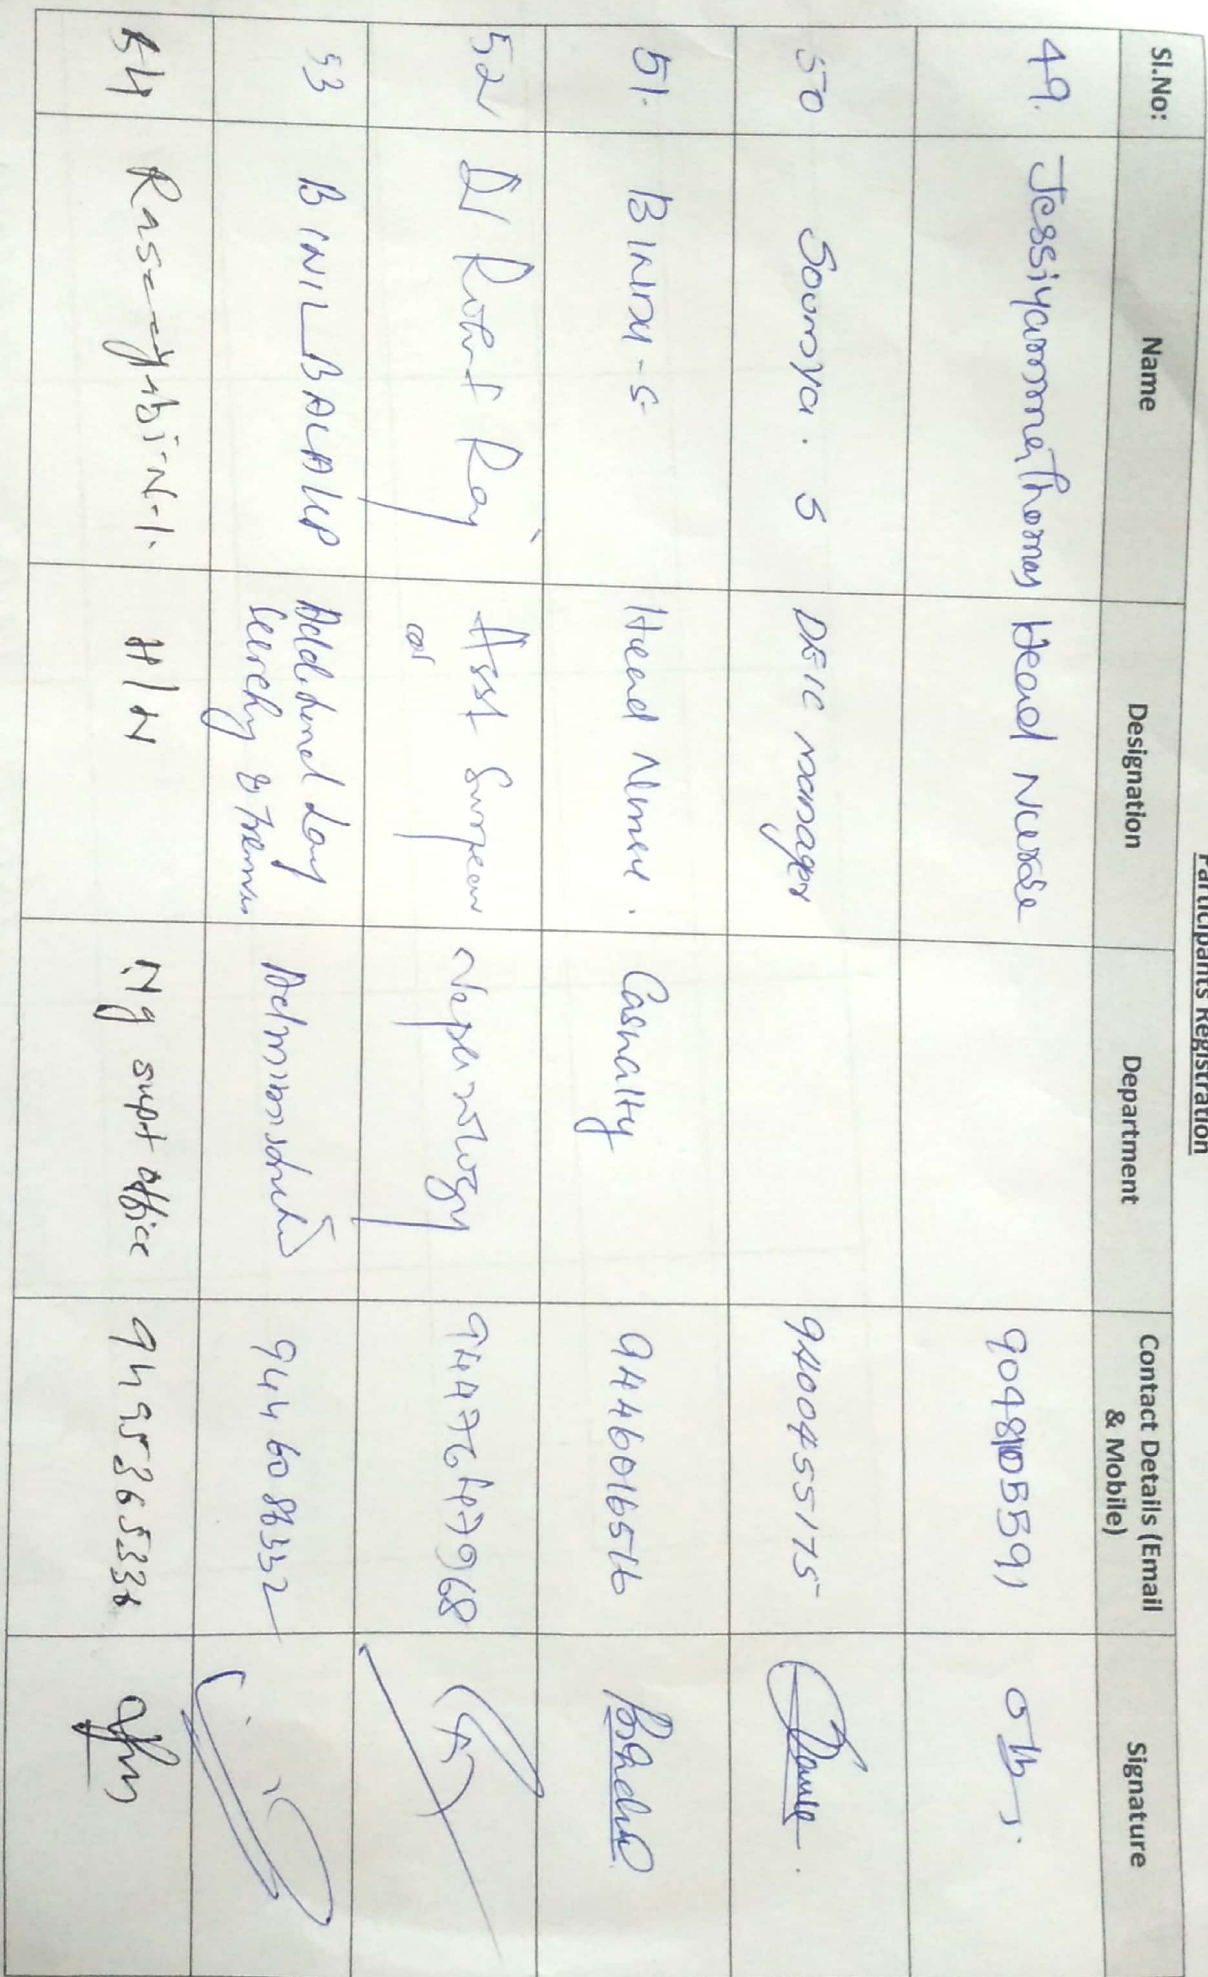 Participants Registration
Sl.No: Name Designation Department Contact Details (Email
& Mobile) Signature
49. Jessiyamma Thomas Head Nurse
50 Soumya . S DEIC manager 9400455175
51. BINDU - S Head Nurse . Casualty 9446016516
52 Dr Rohit Raj Asst Surgeon Nephrology 9447647968
53 BINIL BALAN P Additional Lay
Secretary & Treasurer 9446086332
54 H/N Ng supt office 9495365336